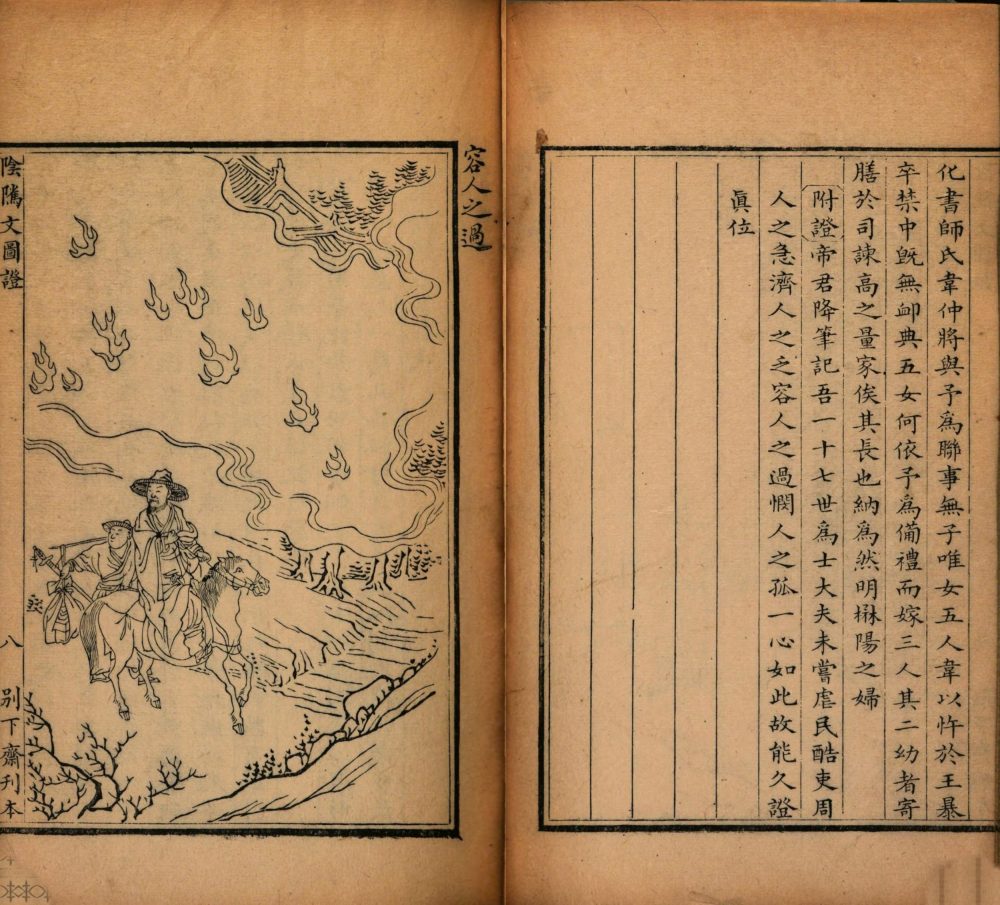 化書師氏韋仲將與予爲聯事無子唯女五人韋以忤於王暴
卒禁中旣無卹典五女何依予爲備禮而嫁三人其二幼者寄
膳於司諫高之量家俟其長也納爲然明楙陽之婦
附證帝君降筆記吾一十七世爲士大夫未嘗虐民酷吏周
人之急濟人之乏容人之過憫人之孤一心如此故能久證
眞位
容人之過
陰隲文圖證
八
別下齋刊本